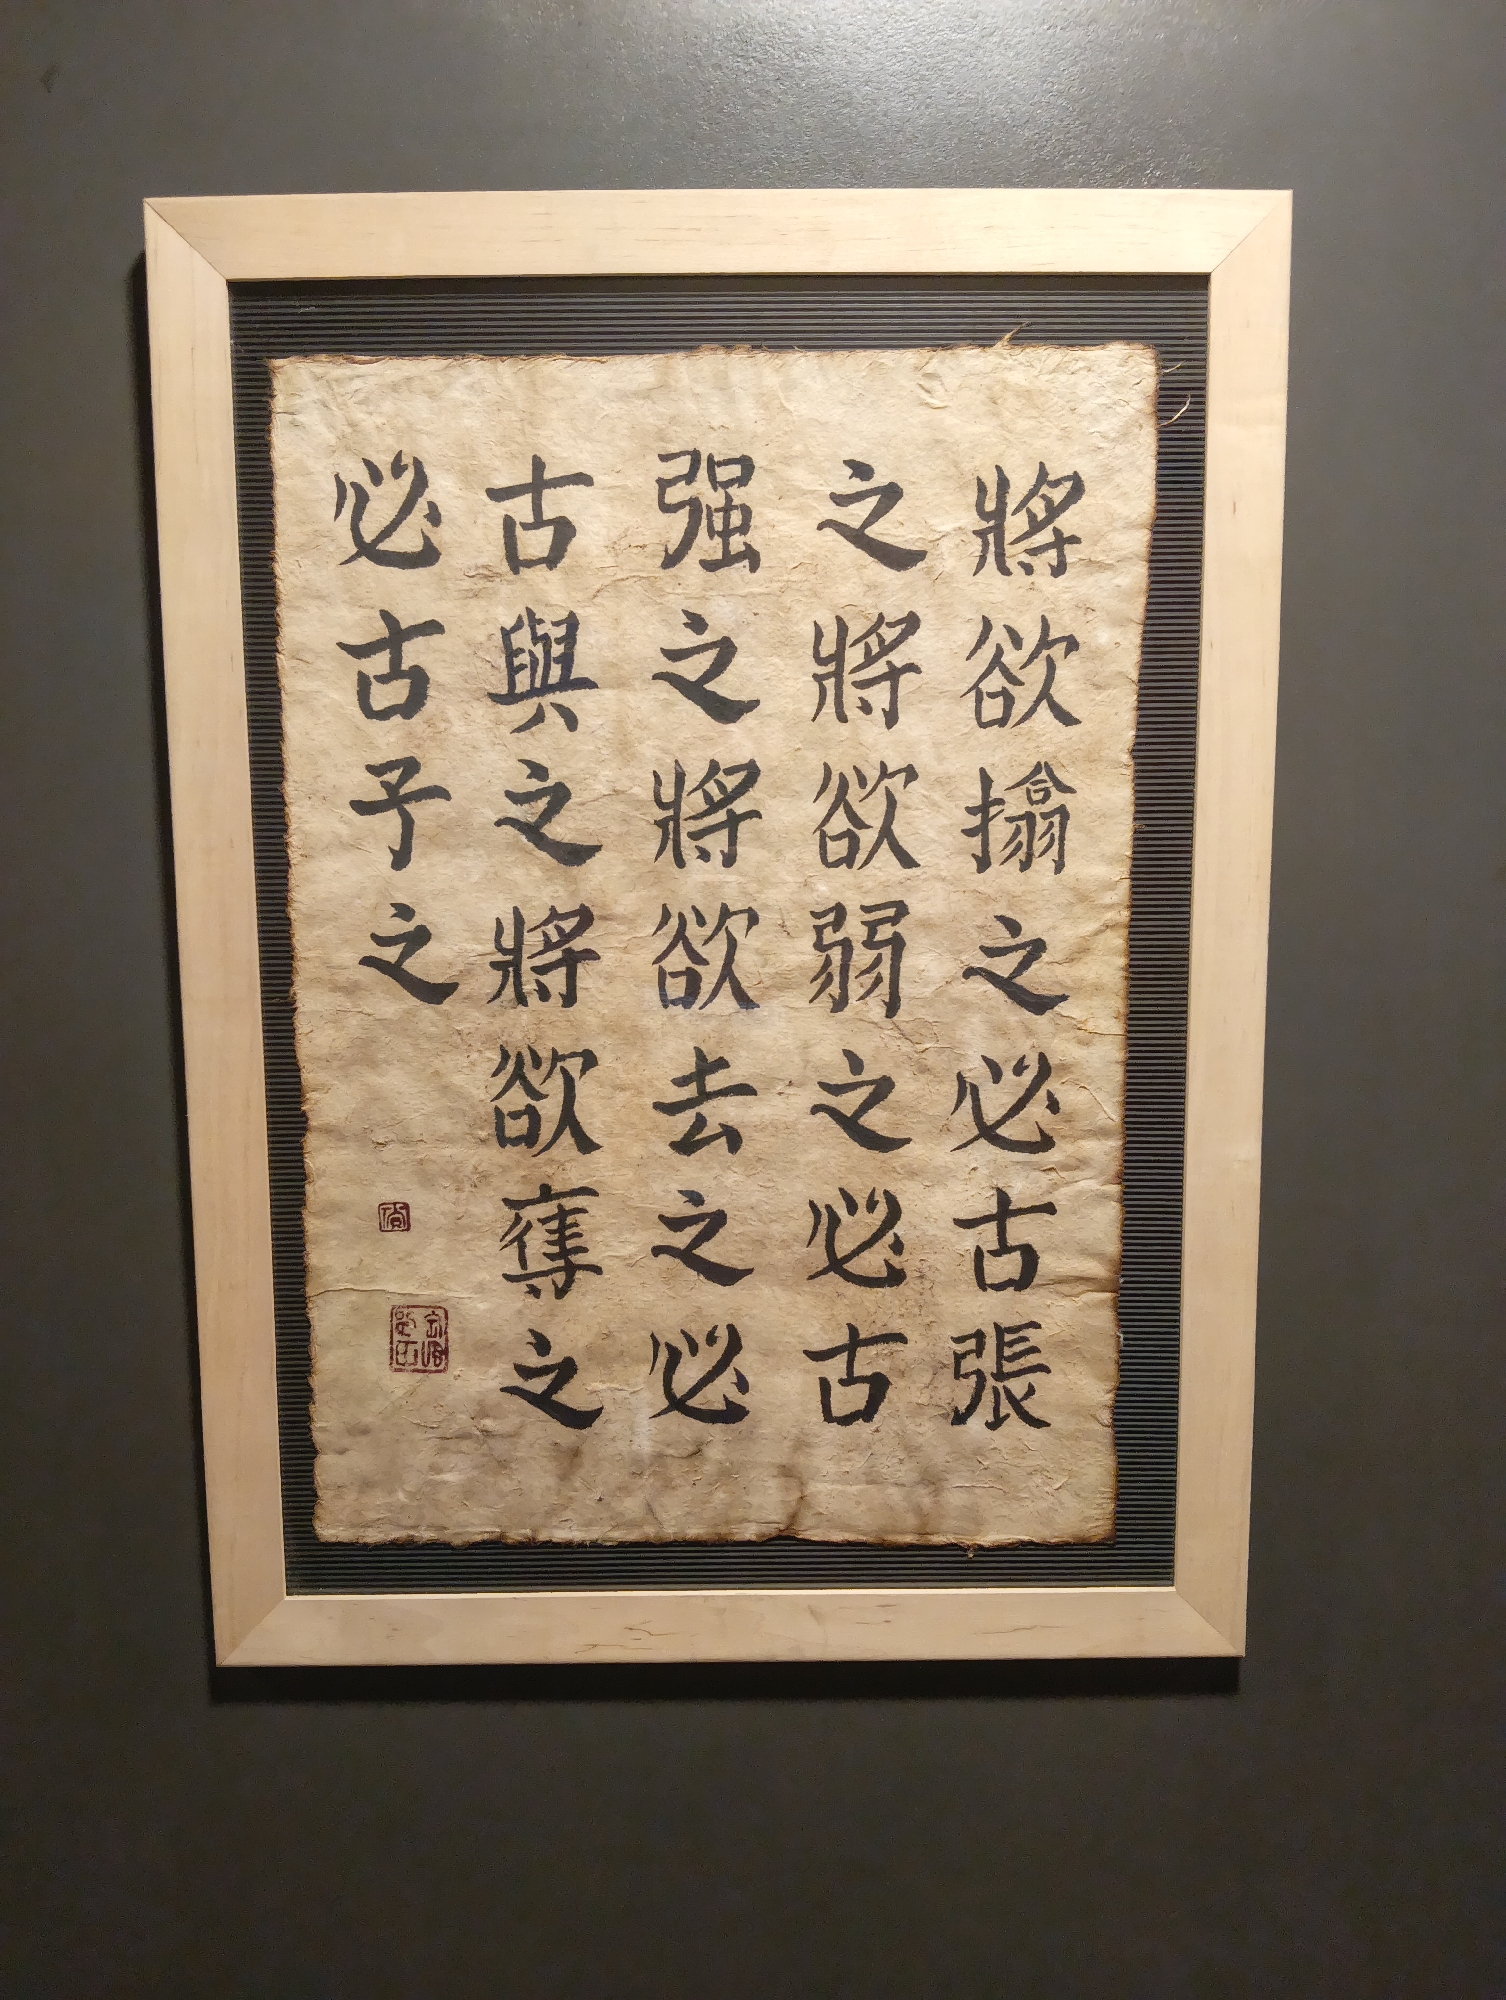 將欲搦之必古張
之將欲弱之必古
强之將欲去之必
古與之將欲奪之
必古予之